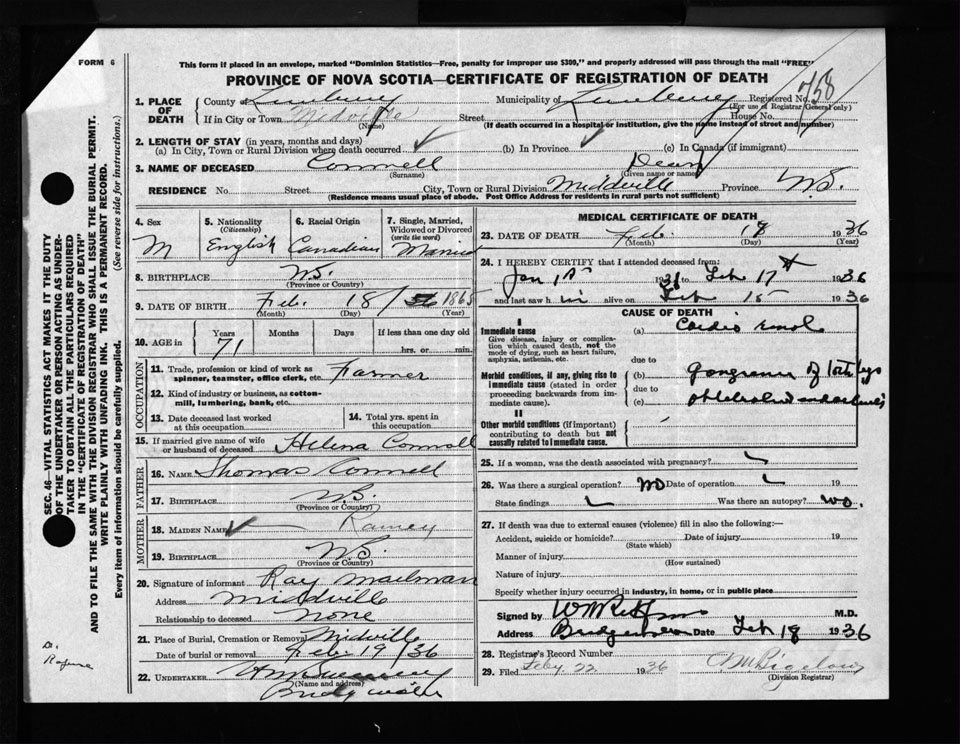 FORM 6
This form if placed in an envelope, marked "Dominion Statistics—Free, penalty for improper use $300," and properly addressed will pass through the mail "FREE"
PROVINCE OF NOVA SCOTIA—CERTIFICATE OF REGISTRATION OF DEATH
1. PLACE OF DEATH County Lunenburg Municipality of Lunenburg Registered No. 758
(For use of Registrar General only)
If in City or Town Midville Street House No.
(Name) (If death occurred in a hospital or institution, give the name instead of street and number)
2. LENGTH OF STAY (in years, months and days)
(a) In City, Town or Rural Division where death occurred ✓ (b) In Province ✓ (c) In Canada (if immigrant)
3. NAME OF DECEASED Connell Dean
(Surname) (Given name or names)
RESIDENCE No. Street City, Town or Rural Division Midville Province N.S.
(Residence means usual place of abode. Post Office Address for residents in rural parts not sufficient)
4. Sex M
5. Nationality (Citizenship) English
6. Racial Origin Canadian
7. Single, Married, Widowed or Divorced (write the word) Married
8. BIRTHPLACE N.S.
(Province or Country)
9. DATE OF BIRTH Feb. 18 1865
(Month) (Day) (Year)
10. AGE in Years Months Days If less than one day old
71 hrs. or min.
OCCUPATION
11. Trade, profession or kind of work as spinner, teamster, office clerk, etc. Farmer
12. Kind of industry or business, as cotton-mill, lumbering, bank, etc.
13. Date deceased last worked at this occupation
14. Total yrs. spent in this occupation
15. If married give name of wife or husband of deceased Helena Connell
FATHER
16. NAME Thomas Connell
17. BIRTHPLACE N.S.
(Province or Country)
MOTHER
18. MAIDEN NAME ✓ Ramey
19. BIRTHPLACE N.S.
(Province or Country)
20. Signature of informant Ray Mailman
Address Midville
Relationship to deceased none
21. Place of Burial, Cremation or Removal Midville
Date of burial or removal Feb. 19/36
22. UNDERTAKER
(Name and address)
Bridgewater
MEDICAL CERTIFICATE OF DEATH
23. DATE OF DEATH Feb. 18 1936
(Month) (Day) (Year)
24. I HEREBY CERTIFY that I attended deceased from:
Jan 1st 1931 to Feb 17th 1936
and last saw him alive on Feb 15 1936
CAUSE OF DEATH
I
Immediate cause (a)
Give disease, injury or complication which caused death, not the mode of dying, such as heart failure, asphyxia, asthenia, etc.
due to
Morbid conditions, if any, giving rise to immediate cause (stated in order proceeding backwards from immediate cause). (b) Gangrene of both legs
due to
(c)
II
Other morbid conditions (if important) contributing to death but not causally related to immediate cause.
25. If a woman, was the death associated with pregnancy?
26. Was there a surgical operation? No Date of operation 19
State findings Was there an autopsy? No.
27. If death was due to external causes (violence) fill in also the following:—
Accident, suicide or homicide? Date of injury 19
(State which)
Manner of injury
(How sustained)
Nature of injury
Specify whether injury occurred in industry, in home, or in public place
Signed by M.D.
Address Bridgewater Date Feb 18 1936
28. Registrar's Record Number
29. Filed Feby. 22 1936 Bigelow
(Division Registrar)
SEC. 46—VITAL STATISTICS ACT MAKES IT THE DUTY
OF THE UNDERTAKER OR PERSON ACTING AS UNDER-
TAKER TO OBTAIN ALL THE PARTICULARS REQUIRED
IN THE "CERTIFICATE OF REGISTRATION OF DEATH"
AND TO FILE THE SAME WITH THE DIVISION REGISTRAR WHO SHALL ISSUE THE BURIAL PERMIT.
WRITE PLAINLY WITH UNFADING INK. THIS IS A PERMANENT RECORD.
Every item of information should be carefully supplied. (See reverse side for instructions.)